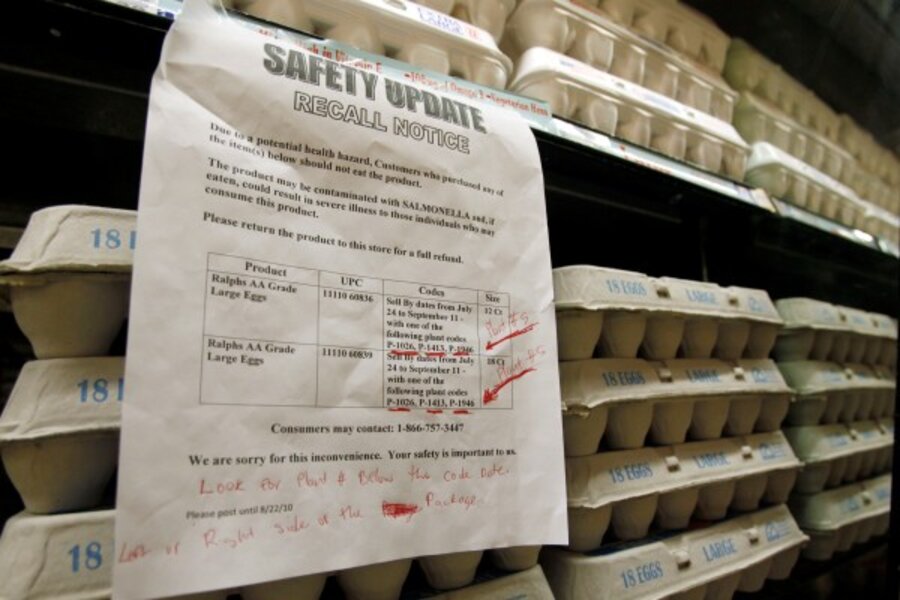 LARGE
in Vitamin E • 10% of Omega 3 • Vegetarian Hens
SAFETY UPDATE
RECALL NOTICE
Due to a potential health hazard, Customers who purchased any of
the item(s) below should not eat the product.
The product may be contaminated with SALMONELLA and, if
eaten, could result in severe illness to those individuals who may
consume this product.
Please return the product to this store for a full refund.
Product UPC Codes Size
Ralphs AA Grade Large Eggs 11110 60836 Sell By dates from July 12 Ct
24 to September 11 -
with one of the
following plant codes Plant #'s
P-1026, P-1413, P-1946
Ralphs AA Grade Large Eggs 11110 60839 Sell By dates from July 18 Ct
24 to September 11 -
with one of the Plant #'s
following plant codes
P-1026, P-1413, P-1946
Consumers may contact: 1-866-757-3447
We are sorry for this inconvenience. Your safety is important to us.
Look for Plant # Below the code Date.
Please post until 8/22/10
Left or Right side of the Package.
18
18
18
18 EGGS LARGE
18 EGGS LARGE
18 EGGS LARGE
18 EGGS LARGE